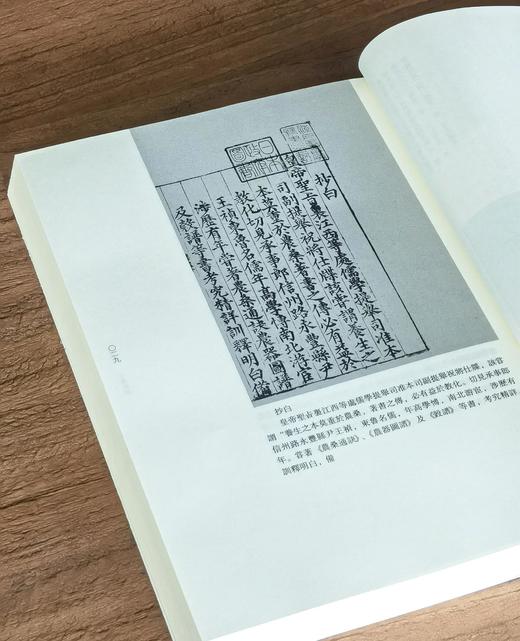 抄白
皇帝聖旨裏江西等處儒學提舉司准本
司副提舉祝將仕牒該嘗謂養生之
本莫重於農桑著書之傳必有益於
教化切見承事郎信州路永豐縣尹
王禎東魯名儒年高學博南北游宦
涉歷有年嘗著農桑通訣農器圖譜
及穀譜等書考究精詳訓釋明白備
〇二九
抄白
皇帝聖旨裏江西等處儒學提舉司准本司副提舉祝將仕牒，該嘗
謂“養生之本莫重於農桑，著書之傳，必有益於教化。切見承事郎
信州路永豐縣尹王禎，東魯名儒，年高學博，南北游宦，涉歷有
年。嘗著《農桑通訣》、《農器圖譜》及《穀譜》等書，考究精詳
訓釋明白，備